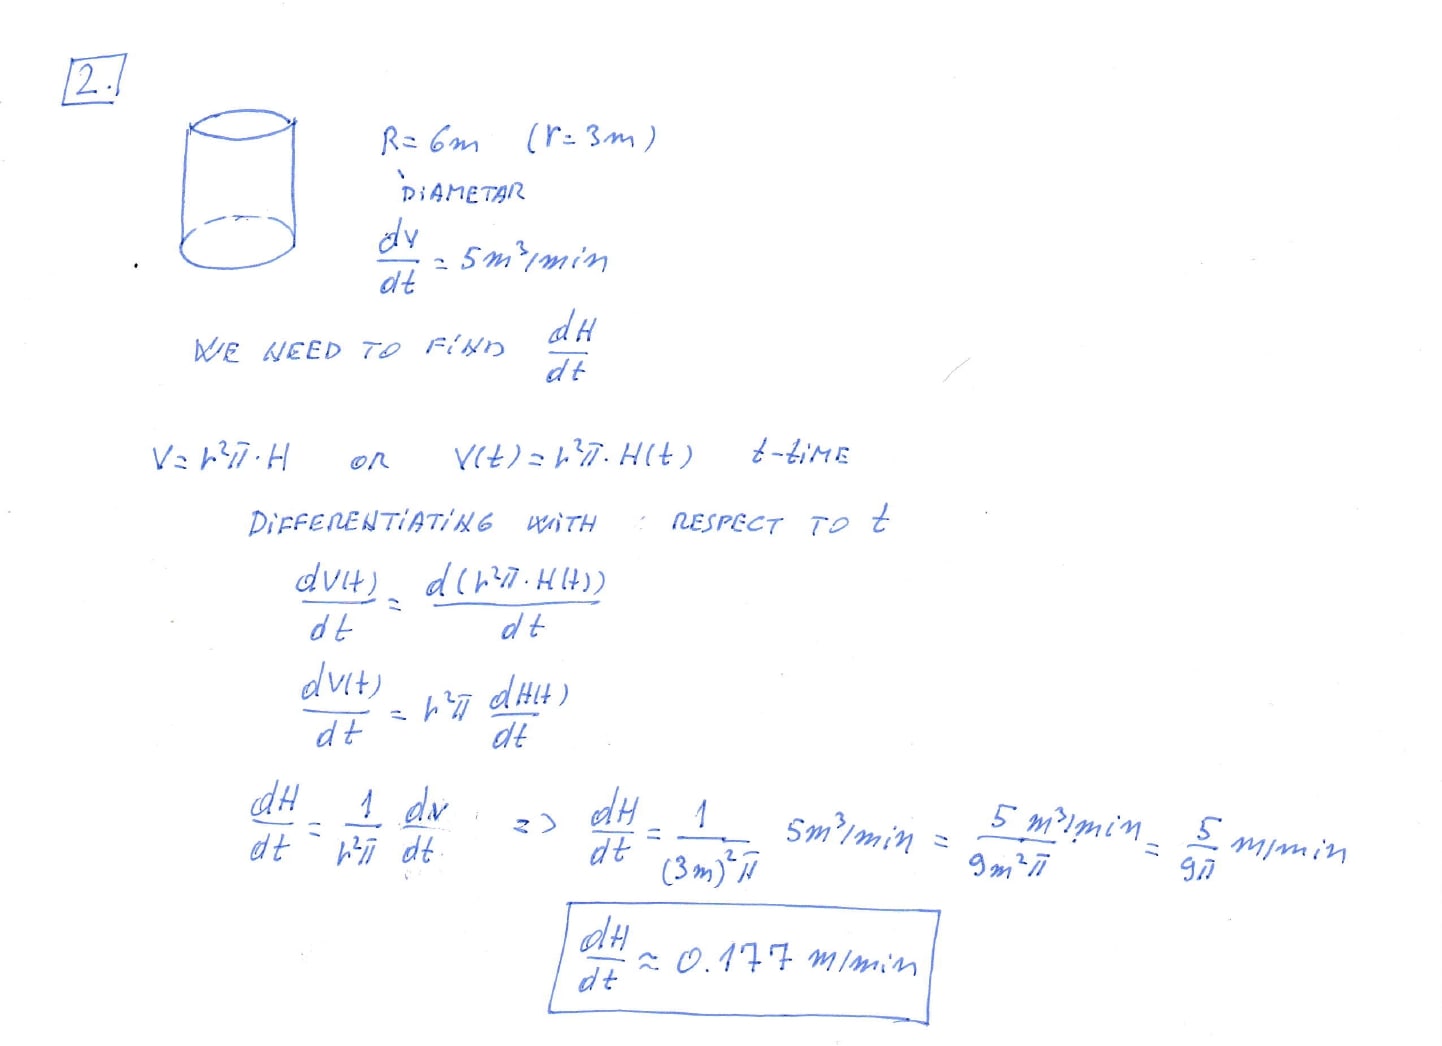 2.
R = 6m (r = 3m)
DIAMETAR
dV/dt = 5m³/min
WE NEED TO FIND dH/dt
V = r²π·H OR V(t) = r²π·H(t) t-tiME
DIFFERENTIATING WITH RESPECT TO t
dV(t)/dt = d(r²π·H(t))/dt
dV(t)/dt = r²π dH(t)/dt
dH/dt = 1/r²π dV/dt => dH/dt = 1/(3m)²π 5m³/min = 5 m³/min/9m²π = 5/9π m/min
dH/dt ≈ 0.177 m/min